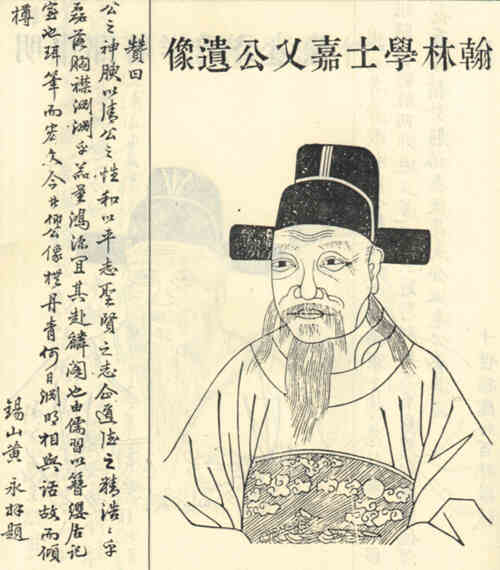 翰林學士嘉乂公遺像
贊曰
公之神腴以清公之性和以平志聖賢之志合道德之精浩浩乎
磊落胸襟淵淵乎器量鴻深宜其赴麟閣也由儒習以簪纓居記
室也珥筆而宏文今公像模丹青何日淵明相與話故而傾
樽
錫山黃永祥題